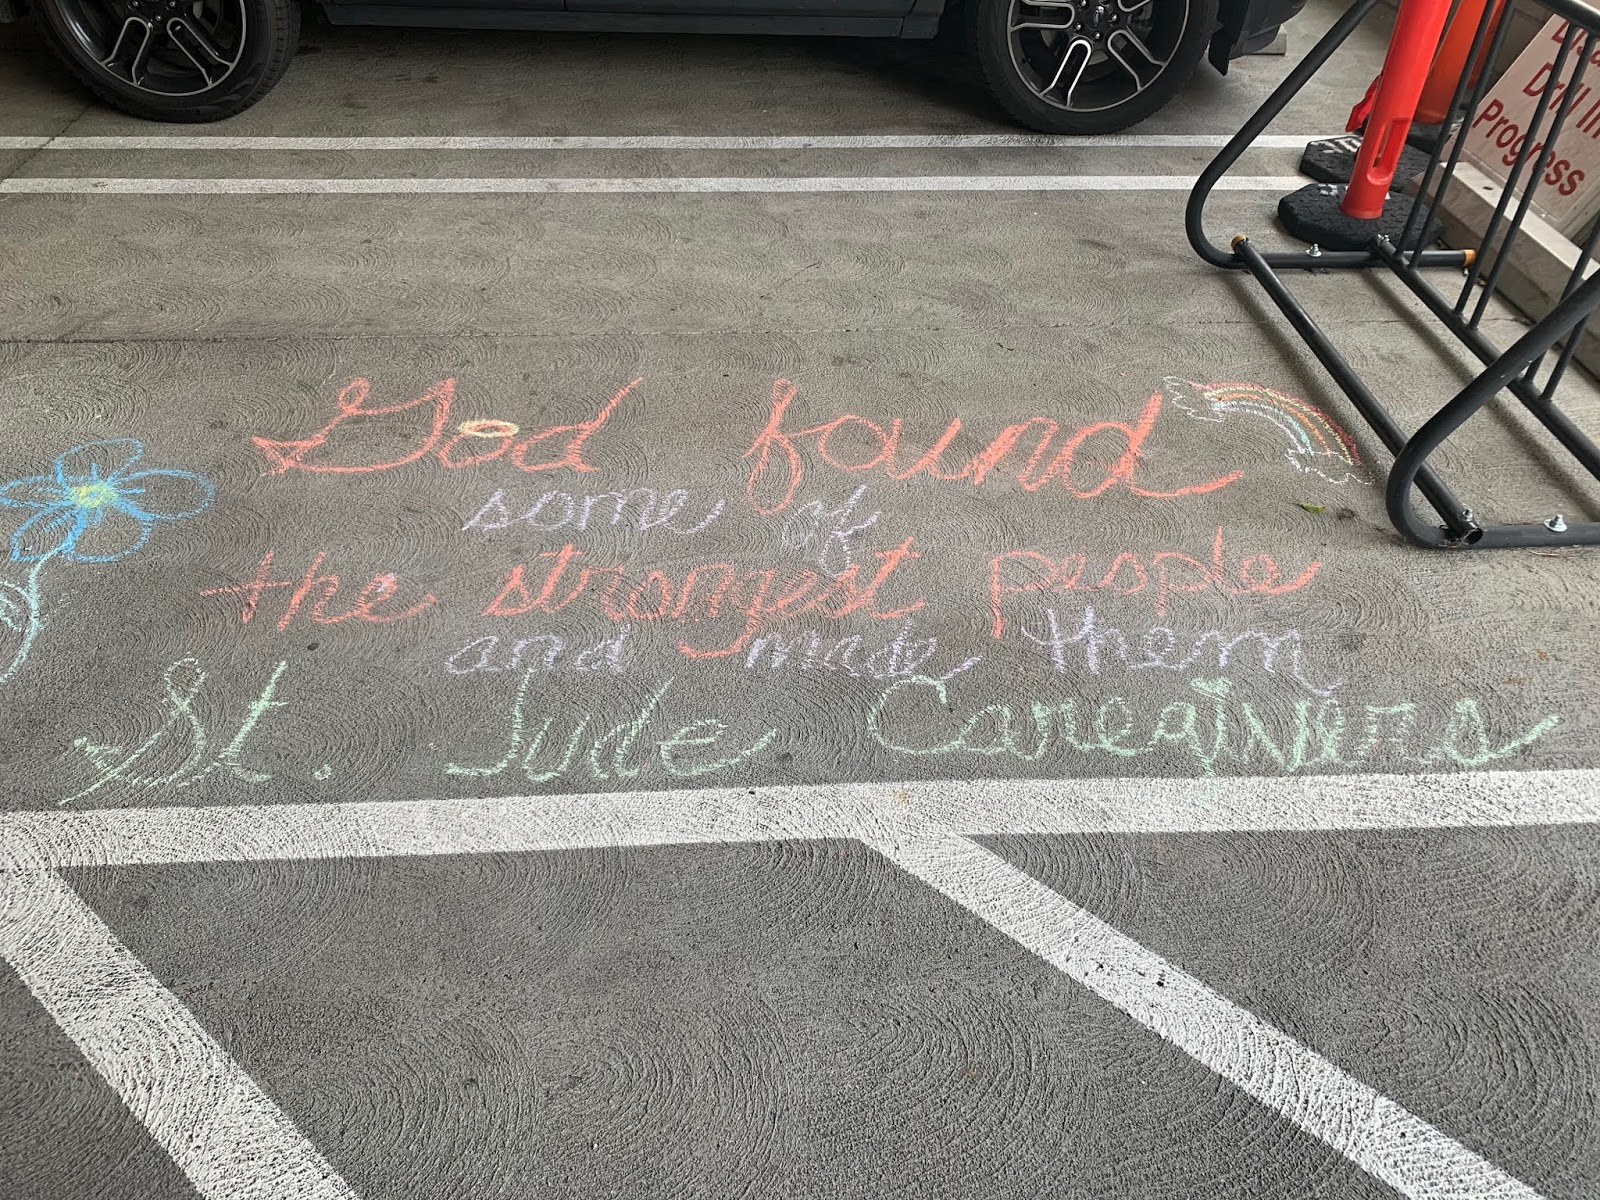 God found
some of
the strongest people
and made them
St. Jude Caregivers
Drill In
Progress